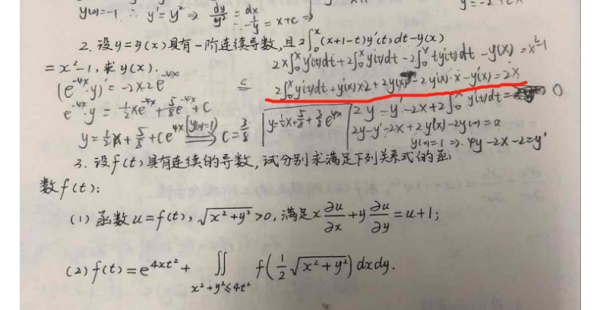 y(0)=-1 ∴ y'=y² ⇒ dy/y² = dx ∴ -1/y = x+c ⇒
2. 设y=y(x)具有一阶连续导数,且2∫₀ˣ(x+1-t)y'(t)dt-y(x)
=x²-1,求y(x).
2x∫₀ˣy'(t)dt+2∫₀ˣy'(t)dt-2∫₀ˣty'(t)dt-y(x)=x²-1
2∫₀ˣy'(t)dt+y'(x)·x·2+2y'(x)-2y'(x)·x-y'(x)=2x
(e⁻⁴ˣ·y)'=-2x·2e⁻⁴ˣ
e⁻⁴ˣ·y=½xe⁻⁴ˣ+⅝e⁻⁴ˣ+C
y=½x+⅝+Ce⁴ˣ y(0)=1 ⇒ C=⅜
y=½x+⅝+⅜e⁴ˣ
2y'-y'-2x+2∫₀ˣy'(t)dt=0
2y'-y'-2x+2y(x)-2y(0)=0
y(0)=1 ⇒
3. 设f(t)具有连续的导数,试分别求满足下列关系式的函
数f(t):
(1) 函数u=f(t),√(x²+y²)>0,满足x ∂u/∂x + y ∂u/∂y = u+1;
(2) f(t)=e^(4πt²)+∬_(x²+y²≤4t²) f(½√(x²+y²))dxdy.